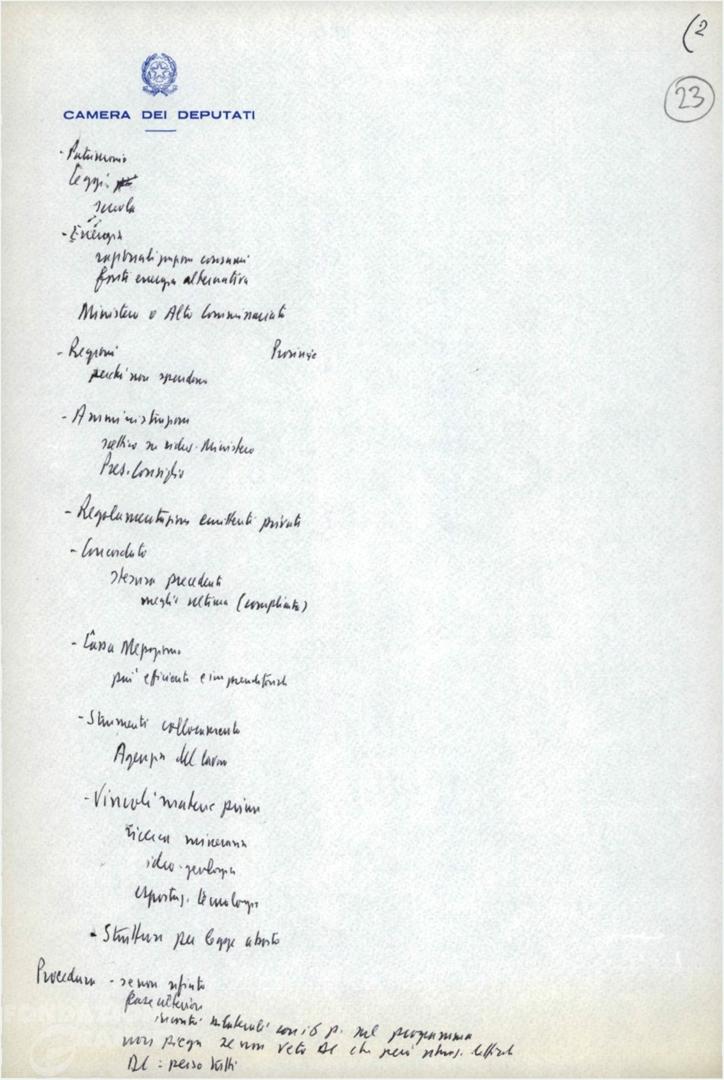 (2
23
CAMERA DEI DEPUTATI
- Patrimonio
Leggi
scuola
- Energia
consumi
fonti energia alternativa
Ministero o Alto Commissariato
- Regioni Province
perché non spendono
- Amministrazione
Ministero
Pres. Consiglio
- Regolamentazione emittenti private
- Concordato
stesura precedente
meglio ultima (compliata)
- Cassa Mezzogiorno
più efficiente e imprenditoriale
- Strumenti collocamento
Agenzia del lavoro
- Vincoli materie prime
ricerca mineraria
idro-geologia
esportaz. tecnologia
- Strutture per legge aborto
Procedura - se non rifiuto
fase ulteriore
incontri bilaterali con i 6 p. sul programma
non se non veto che però
: perso tutti